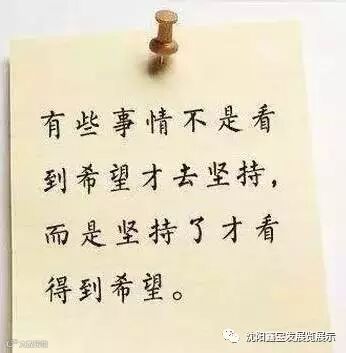 有些事情不是看
到希望才去坚持，
而是坚持了才看
得到希望。
沈阳鑫宝发展览展示